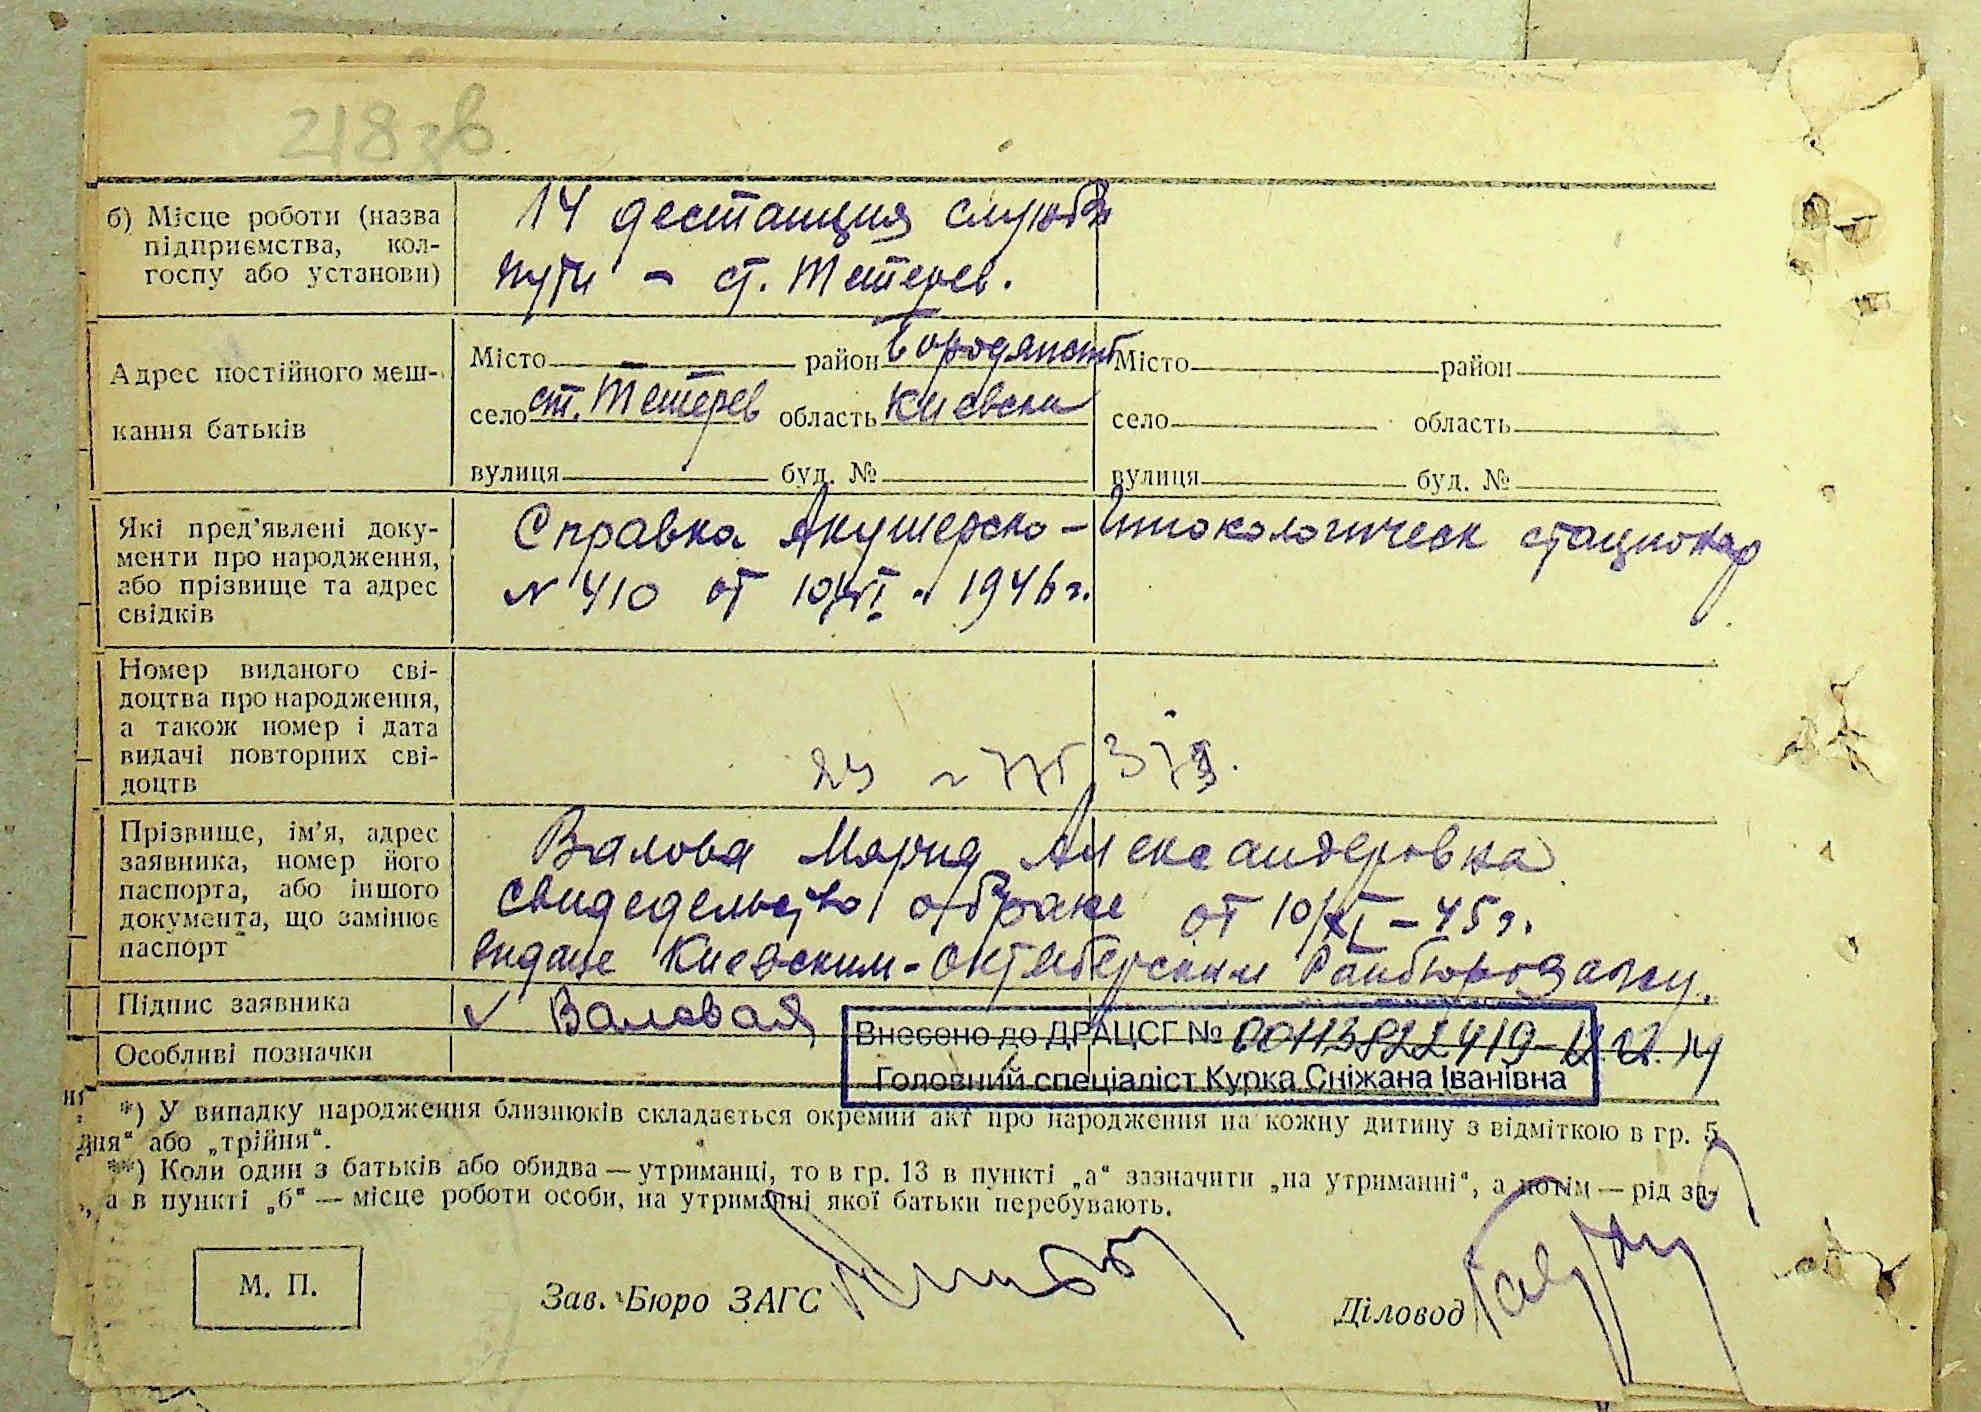 218зв
б) Місце роботи (назва
підприємства, кол-
госпу або установи)
14 дестанция службы
пути – ст. Тетерев.
Адрес постійного меш-
кання батьків
Місто район Бородянский
село ст. Тетерев область Киевска
вулиця буд. №
Місто район
село область
вулиця буд. №
Які пред'явлені доку-
менти про народження,
або прізвище та адрес
свідків
Справка Акушерско-Гинокологическ стационар
№ 410 от 1946 г.
Номер виданого сві-
доцтва про народження,
а також номер і дата
видачі повторних сві-
доцтв
Прізвище, ім'я, адрес
заявника, номер його
паспорта, або іншого
документа, що замінює
паспорт
Валова Мария Александеровна
свидедельство о браке от 10/XI – 45 г.
видане Киевским-Октяберским Райбюро
Підпис заявника
✓ Валовая
Особливі позначки
Внесено до ДРАЦСГ № 00113822419
Головний спеціаліст Курка Сніжана Іванівна
*) У випадку народження близнюків складається окремий акт про народження на кожну дитину з відміткою в гр. 5
дня" або „трійня".
**) Коли один з батьків або обидва — утриманці, то в гр. 13 в пункті „а" зазначити „на утриманні", а потім — рід за-
, а в пункті „б" — місце роботи особи, на утриманні якої батьки перебувають.
М. П.
Зав. Бюро ЗАГС
Діловод